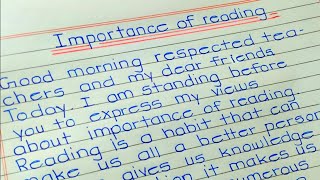 Importance of reading
Good morning respected tea-
chers and my dear friends
Today. I am standing before
you to express my views
about importance of reading.
Reading is a habit that can
make us all a better person
gives us knowledge
it makes us
numerous